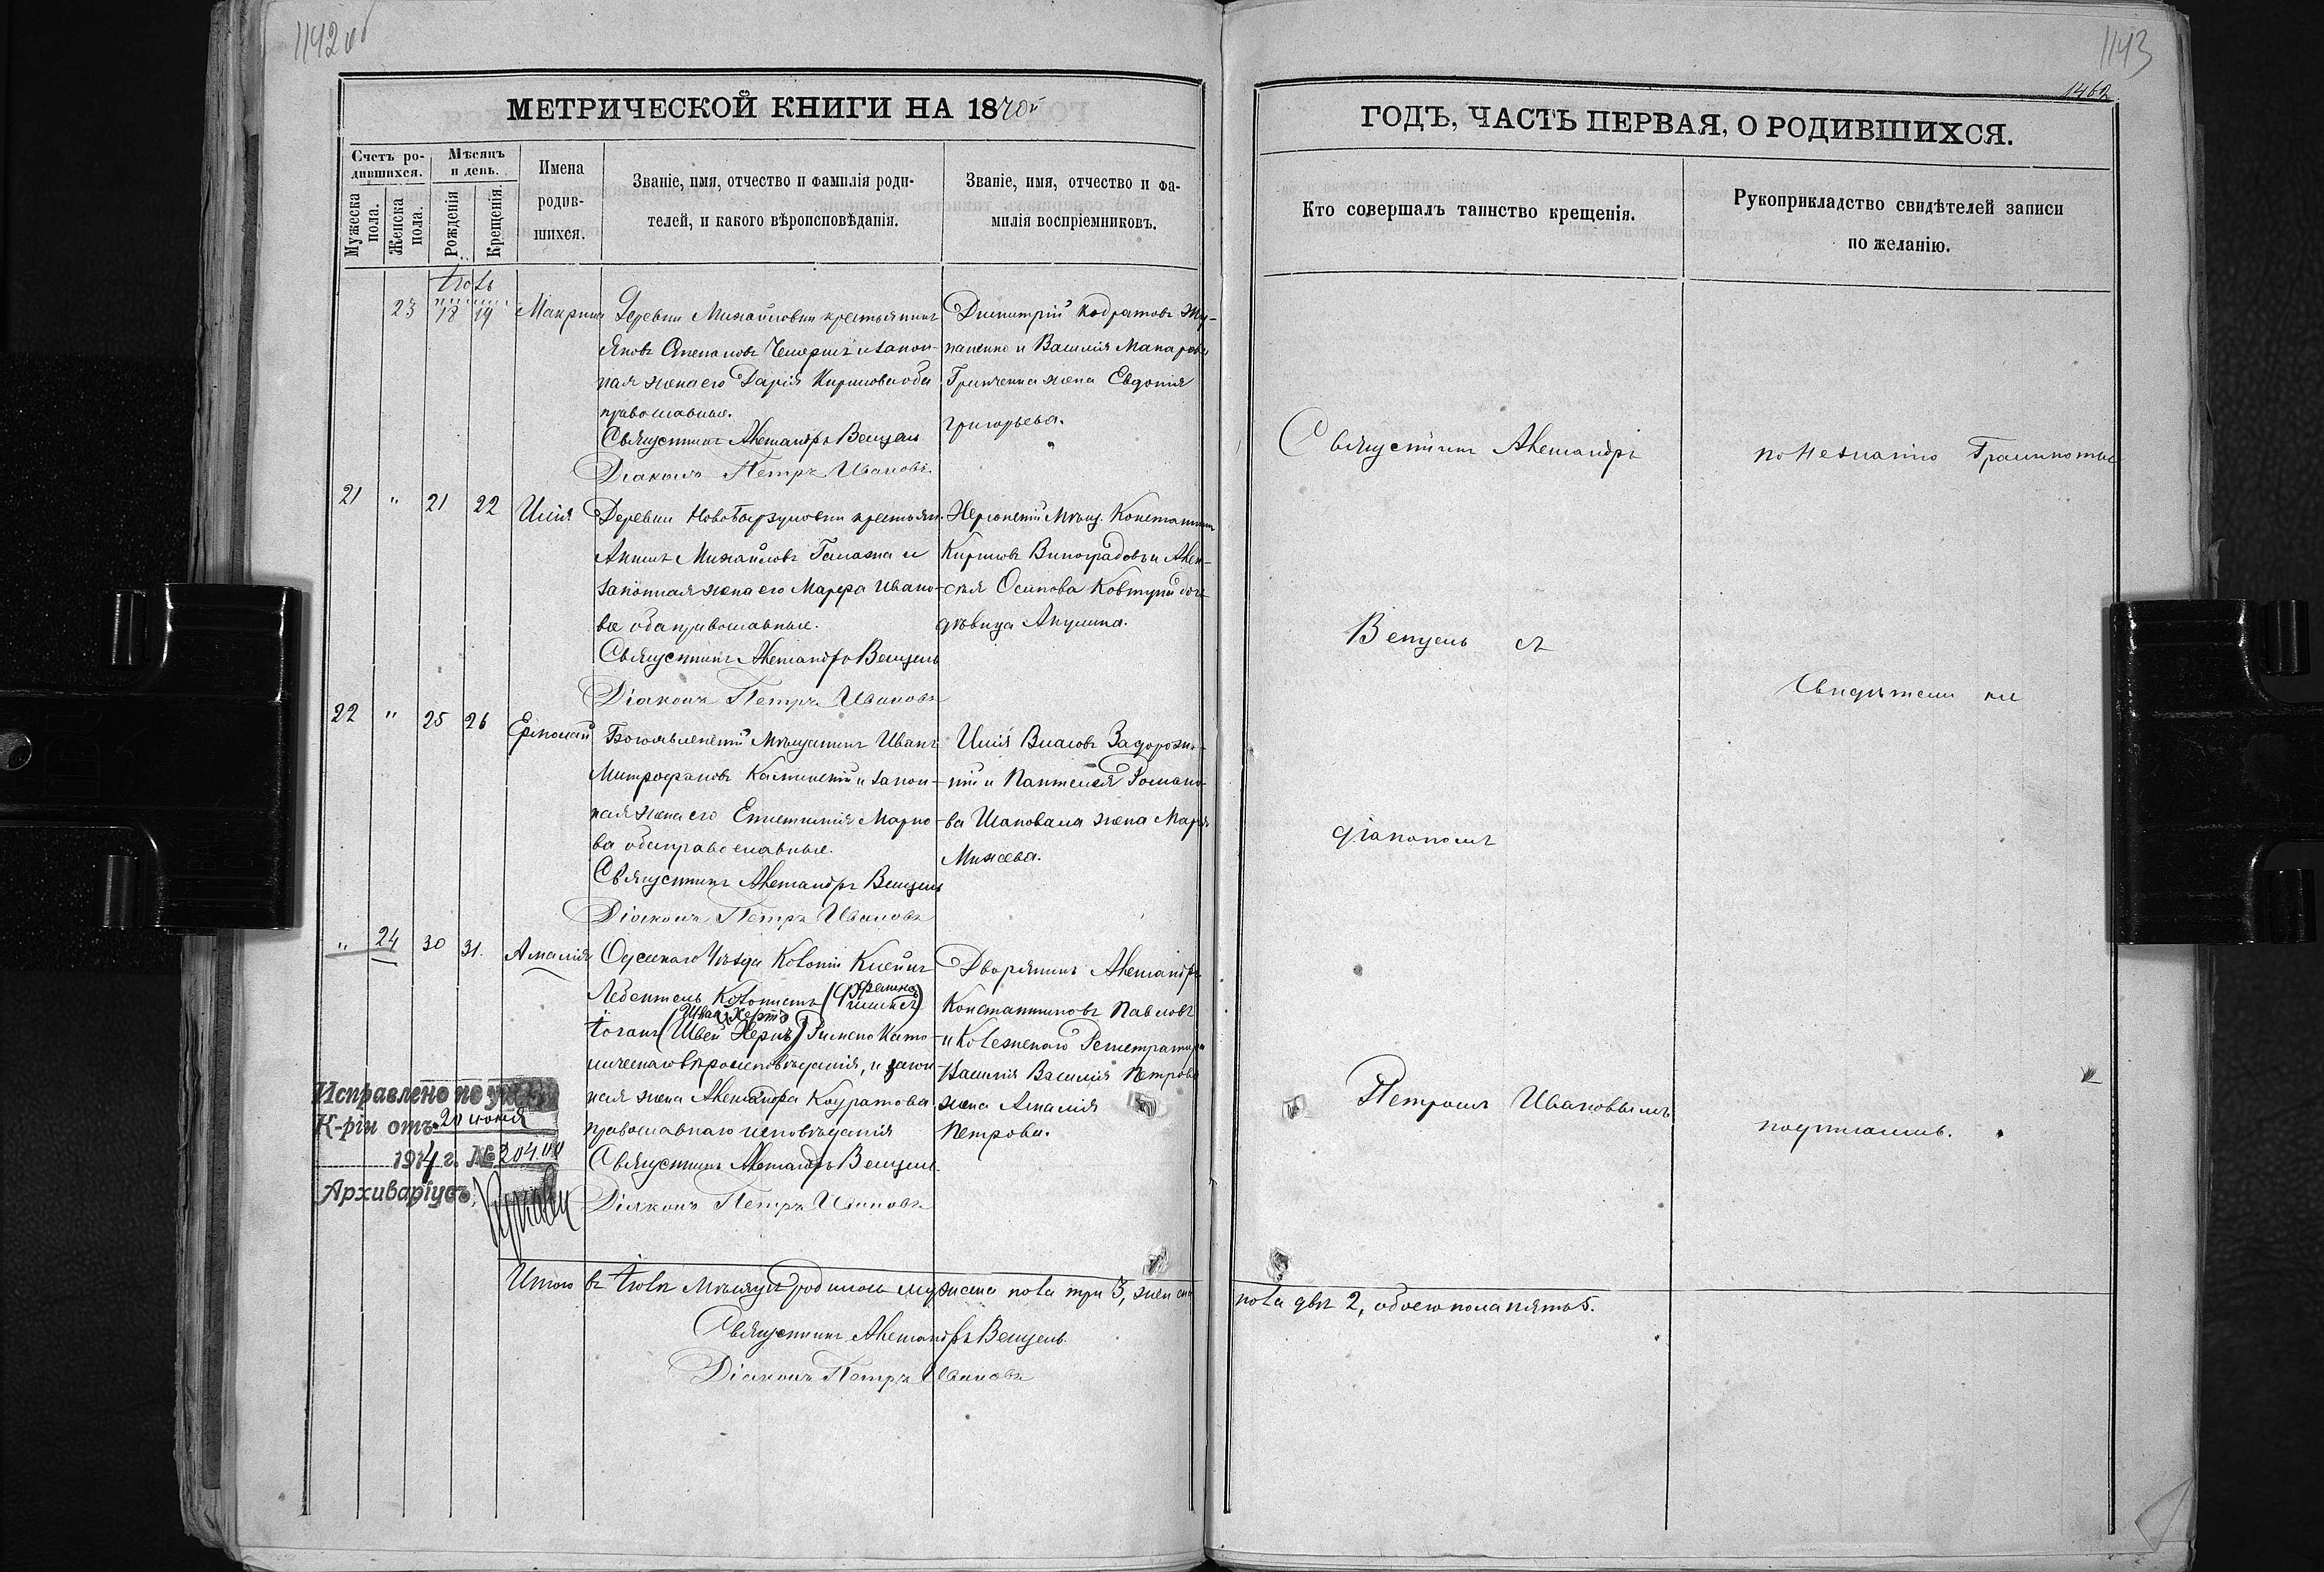 1142 об
МЕТРИЧЕСКОЙ КНИГИ НА 1870й
Счетъ ро-
дившихся.
Мужеска пола.
Женска пола.
Мѣсяцъ
и день.
Рожденія
Крещенія.
Имена
родив-
шихся.
Званіе, имя, отчество и фамилія роди-
телей, и какого вѣроисповѣданія.
Званіе, имя, отчество и фа-
милія воспріемниковъ.
Іюль
23 18 19 Макрина
Деревни Михайловки крестьянинъ
Яковъ Степановъ и закон-
ная жена его Дарія Кирилова оба
православные.
Священникъ Александръ Венцель
Діаконъ Петръ Ивановъ.
Димитрій Кодратовъ Жу-
паненко и Василія Макарова
жена Евдокія
Григорьева.
21 " 21 22 Илія
Деревни крестьян.
Михайловъ и
законная жена его Марфа Ивано-
ва оба православные.
Священникъ Александръ Венцель
Діаконъ Петръ Ивановъ
Мѣщ. Константинъ
Кириловъ Виноградовъ и Алек-
сѣя Осипова дочь
дѣвица Акулина.
22 " 25 26 Ермолай
Мѣщанинъ Иванъ
Митрофановъ и закон-
ная жена его Марко-
ва оба православные.
Священникъ Александръ Венцель
Діаконъ Петръ Ивановъ
Илія Власовъ Задорож-
ній и Пантелея Романо-
ва Шаповала жена Марія
Михеева.
" 24 30 31. Амалія
Одесскаго Уѣзда Колоніи Клейнъ
Либенталь Колонистъ
Іоганъ Римско Като-
лическаго вѣроисповѣданія, и закон
ная жена Александра Кодратова
православнаго исповѣданія
Священникъ Александръ Венцель
Діаконъ Петръ Ивановъ
Дворянинъ Александръ
Константиновъ Павловъ
и Колежскаго Регистратора
Василія Петрова
жена Амалія
Петрова.
Исправлено по
К-ріи отъ 20 іюня
1914 г. №
Архиваріусъ
Итого въ Іюлѣ мѣсяцѣ родилось мужеска пола три 3, женска
Священникъ Александръ Венцель.
Діаконъ Петръ Ивановъ
1143
1462
ГОДЪ, ЧАСТЬ ПЕРВАЯ, О РОДИВШИХСЯ.
Кто совершалъ таинство крещенія.
Рукоприкладство свидѣтелей записи
по желанію.
Священникъ Александръ
Венцель съ
діакономъ
Петромъ Ивановымъ
по незнанію Грамоты
Свидѣтели не
подписались.
пола двѣ 2, обоего пола пять 5.